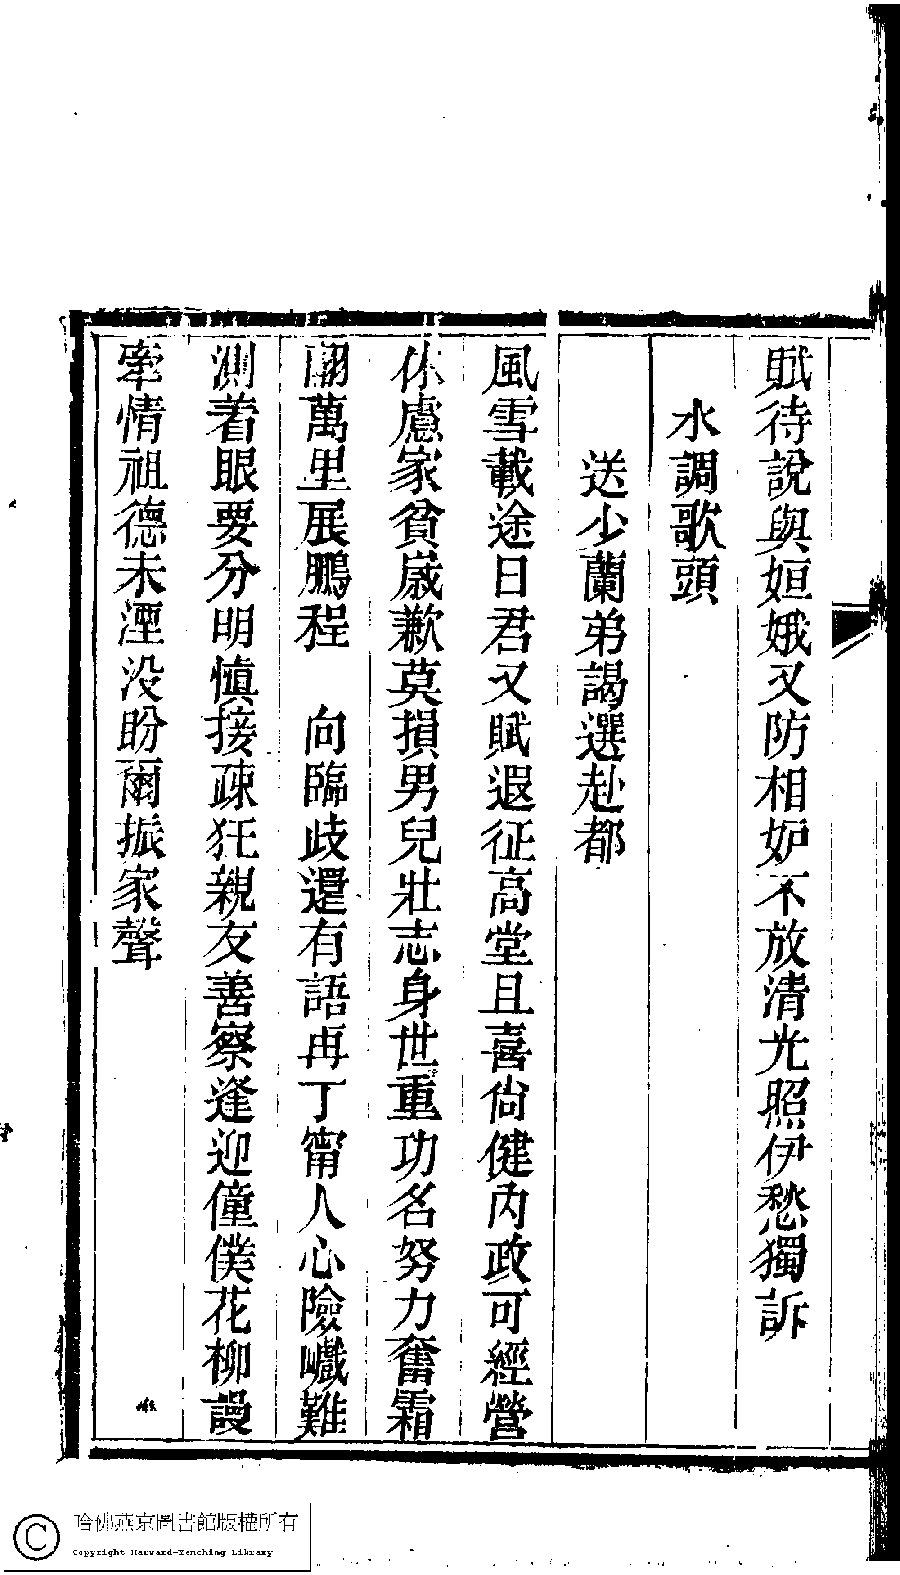 賦待說與姮娥又防相妒不放清光照伊愁獨訴
水調歌頭
送少蘭弟謁選赴都
風雪載途日君又賦遐征高堂且喜尙健內政可經營
休慮家貧歲歉莫損男兒壯志身世重功名努力奮霜
翮萬里展鵬程　向臨歧還有語再丁甯人心險巇難
測着眼要分明愼接疎狂親友善察逢迎僮僕花柳謾
牽情祖德未湮没盼爾振家聲
哈佛燕京圖書館版權所有
Copyright Harvard-Yenching Library